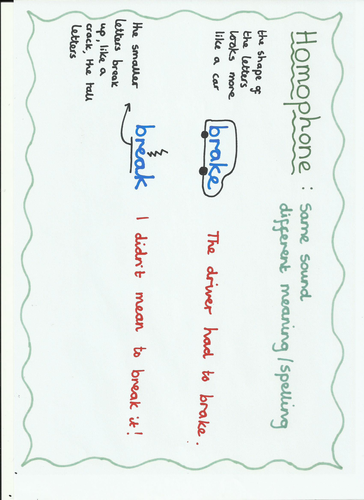 Homophone : same sound
different meaning / spelling
the shape of
the letters
looks more
like a car
brake
The driver had to brake.
the smaller
letters break
up, like a
crack, the tall
letters
break
I didn't mean to break it!